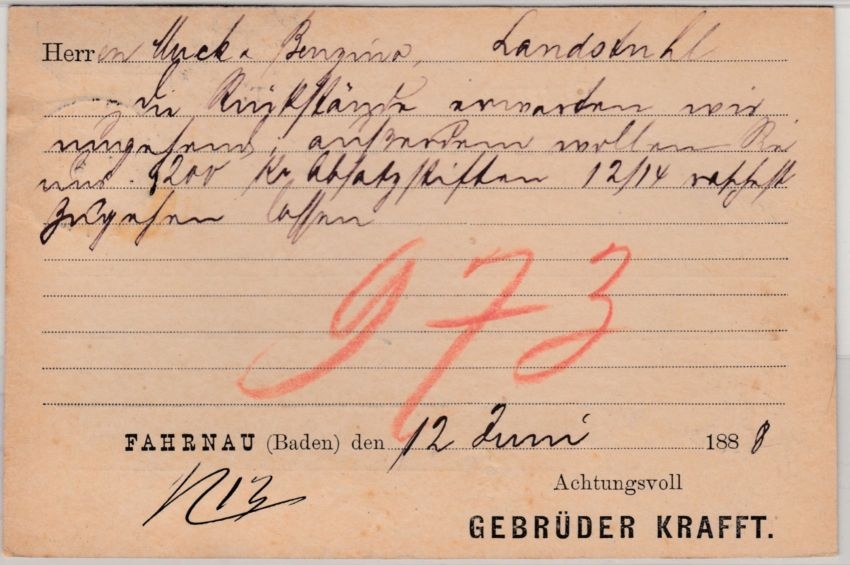 Herren Muck & Benzino, Landstuhl
Die Rückstände erwarten wir
umgehend, außerdem wollen Sie
uns 200 Ko Absatzstiften 12/14
zugehen lassen
973
FAHRNAU (Baden) den 12 Juni 1888
N 13
Achtungsvoll
GEBRÜDER KRAFFT.